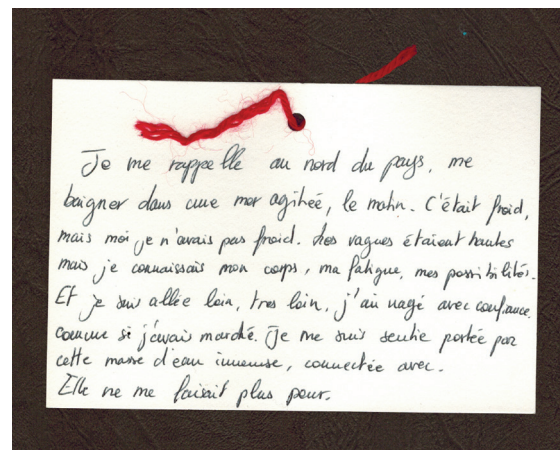 Je me rappelle au nord du pays, me
baigner dans une mer agitée, le matin. C'était froid,
mais moi je n'avais pas froid. Les vagues étaient hautes
mais je connaissais mon corps, ma fatigue, mes possibilités.
Et je suis allée loin, tres loin, j'ai nagé avec confiance
comme si j'avais marché. Je me suis sentie portée par
cette masse d'eau immense, connectée avec.
Elle ne me faisait plus peur.